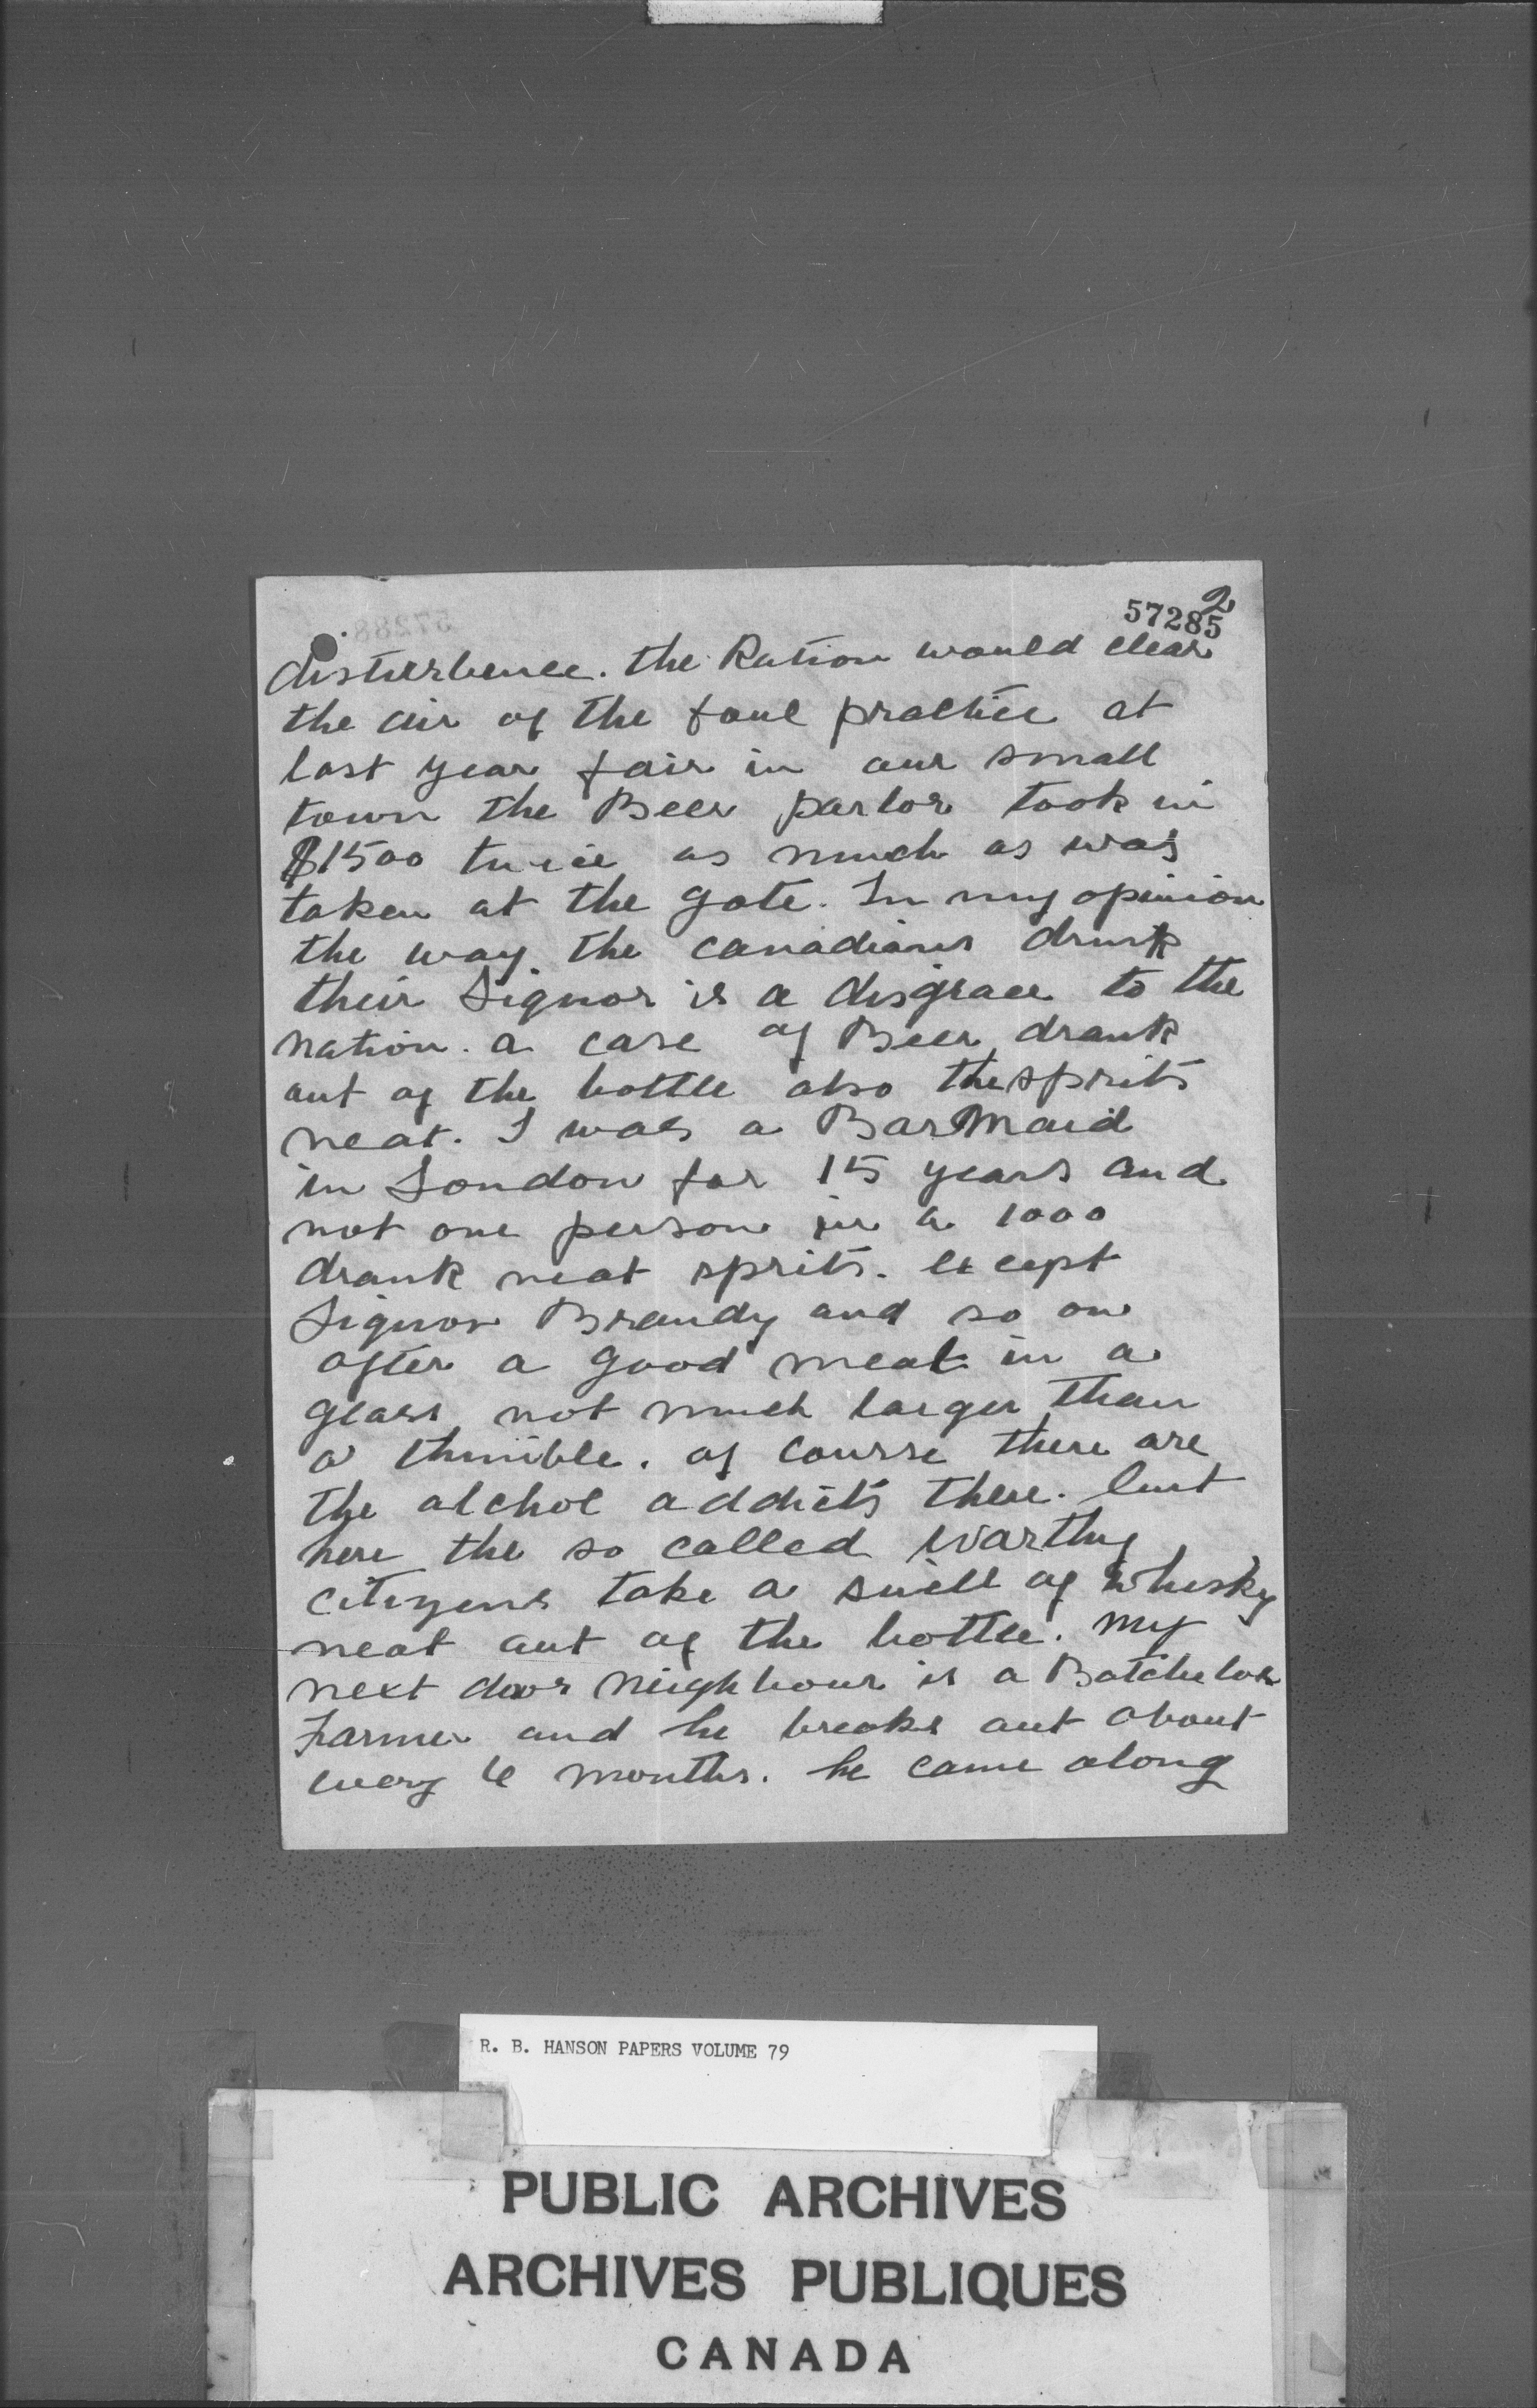 2
57285
disturbence. the Ration would clear
the air of the foul practice at
last year fair in our small
town the Beer parlor took in
$1500 twice as much as was
taken at the gate. In my opinion
the way the canadians drink
their Liquor is a disgrace to the
nation. a case of Beer drank
out of the bottle also the sprits
neat. I was a BarMaid
in London for 15 years and
not one person in a 1000
drank neat sprits. except
Liquor Brandy and so on
after a good meal in a
glass not much larger than
a thimble. of course there are
the alchol addicts there. but
here the so called worthy
citizens take a swill of whisky
neat out of the bottle. my
next door neighbour is a Batchelor
Farmer and he breaks out about
every 6 months. he came along
R. B. HANSON PAPERS VOLUME 79
PUBLIC ARCHIVES
ARCHIVES PUBLIQUES
CANADA